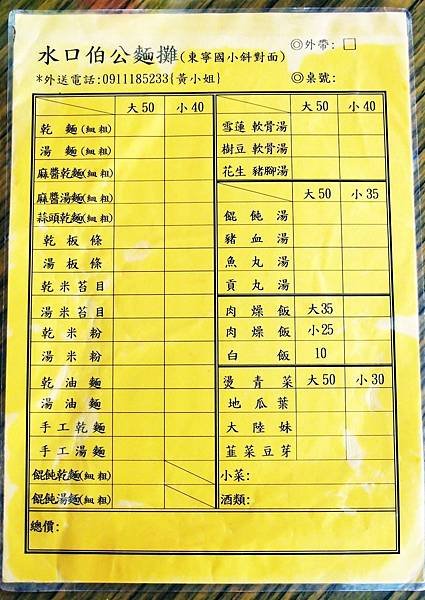 水口伯公麵攤(東寧國小斜對面)
◎外帶: □
*外送電話:0911185233{黃小姐}
◎桌號:
大50 小40
乾麵(細.粗)
湯麵(細.粗)
麻醬乾麵(細.粗)
麻醬湯麵(細.粗)
蒜頭乾麵(細.粗)
乾板條
湯板條
乾米苔目
湯米苔目
乾米粉
湯米粉
乾油麵
湯油麵
手工乾麵
手工湯麵
餛飩乾麵(細.粗)
餛飩湯麵(細.粗)
大50 小40
雪蓮 軟骨湯
樹豆 軟骨湯
花生 豬腳湯
大50 小35
餛飩湯
豬血湯
魚丸湯
貢丸湯
肉燥飯 大35
肉燥飯 小25
白飯 10
燙青菜 大50 小30
地瓜葉
大陸妹
韮菜豆芽
小菜:
酒類:
總價: